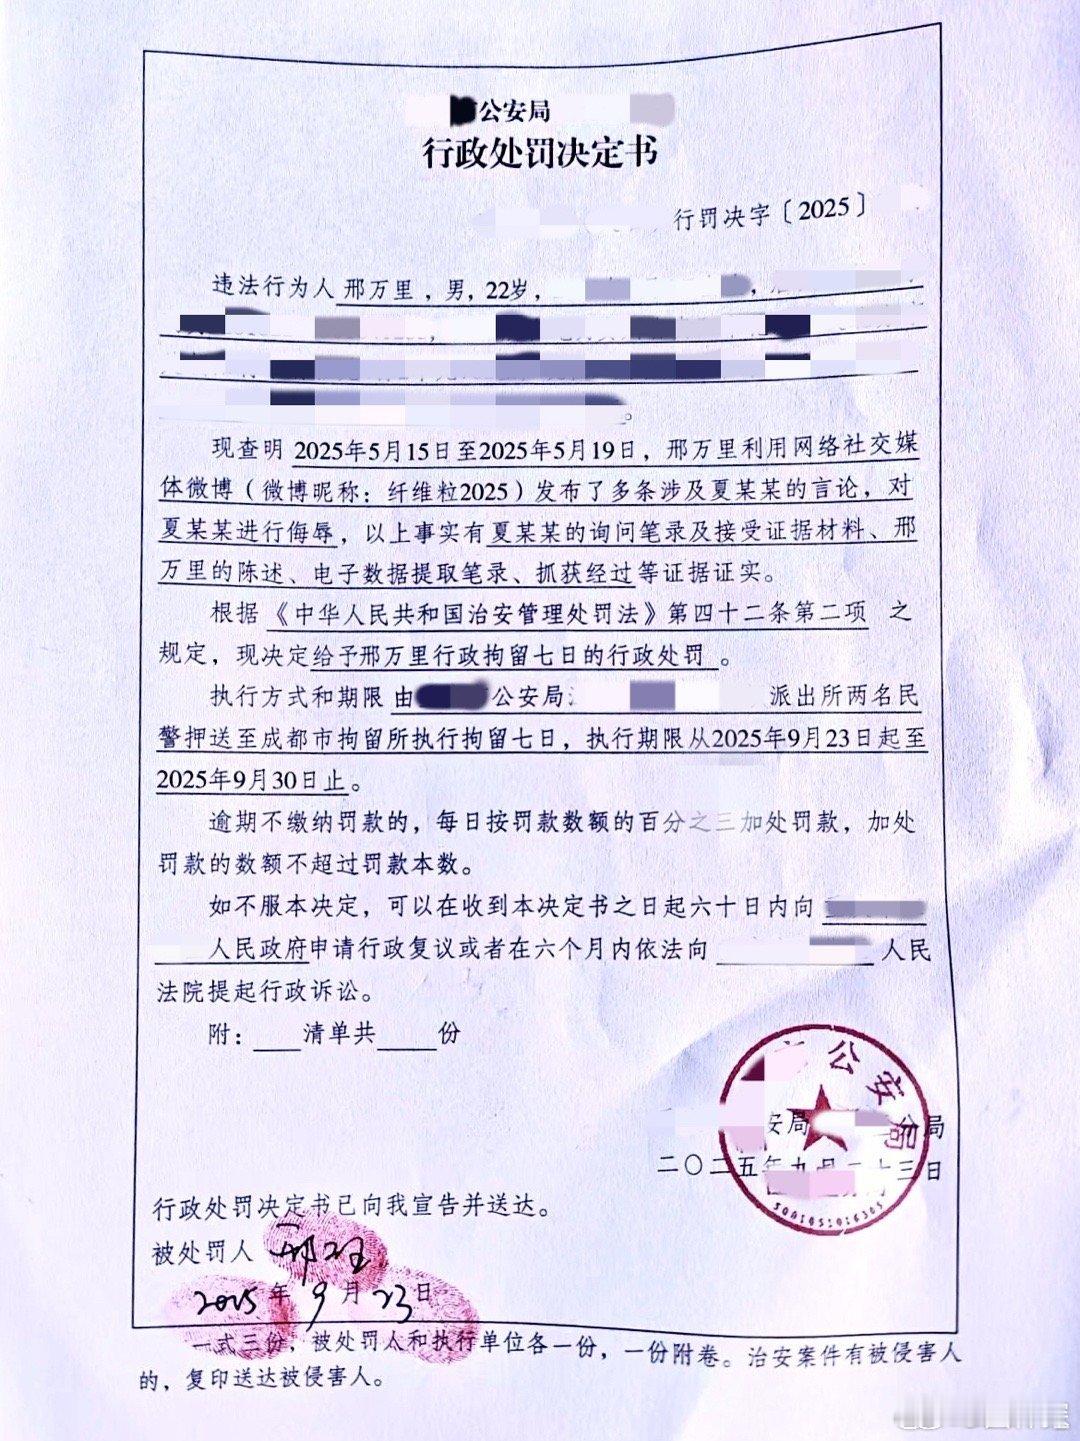 公安局
行政处罚决定书
行罚决字〔2025〕
违法行为人邢万里，男，22岁，
现查明 2025年5月15日至2025年5月19日，邢万里利用网络社交媒
体微博（微博昵称：纤维粒2025）发布了多条涉及夏某某的言论，对
夏某某进行侮辱，以上事实有夏某某的询问笔录及接受证据材料、邢
万里的陈述、电子数据提取笔录、抓获经过等证据证实。
根据《中华人民共和国治安管理处罚法》第四十二条第二项 之
规定，现决定给予邢万里行政拘留七日的行政处罚 。
执行方式和期限 由 公安局 派出所两名民
警押送至成都市拘留所执行拘留七日，执行期限从2025年9月23日起至
2025年9月30日止。
逾期不缴纳罚款的，每日按罚款数额的百分之三加处罚款，加处
罚款的数额不超过罚款本数。
如不服本决定，可以在收到本决定书之日起六十日内向
人民政府申请行政复议或者在六个月内依法向 人民
法院提起行政诉讼。
附： 清单共 份
公安 局
安局 分局
二〇二五年九月二十三日
行政处罚决定书已向我宣告并送达。
被处罚人 邢
2025年9月23日
一式三份，被处罚人和执行单位各一份，一份附卷。治安案件有被侵害人
的，复印送达被侵害人。